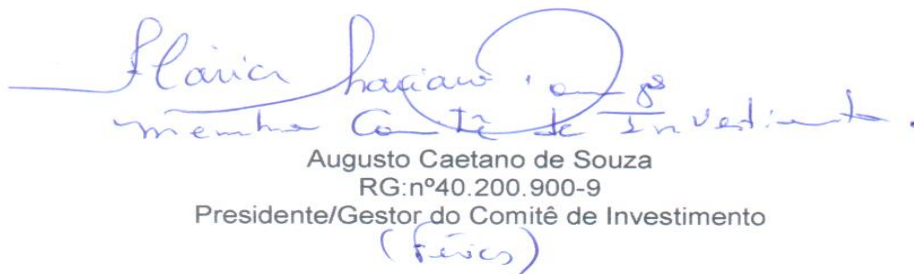 Flávia
membro Comitê de Investimento.
Augusto Caetano de Souza
RG:nº40.200.900-9
Presidente/Gestor do Comitê de Investimento
(Férias)